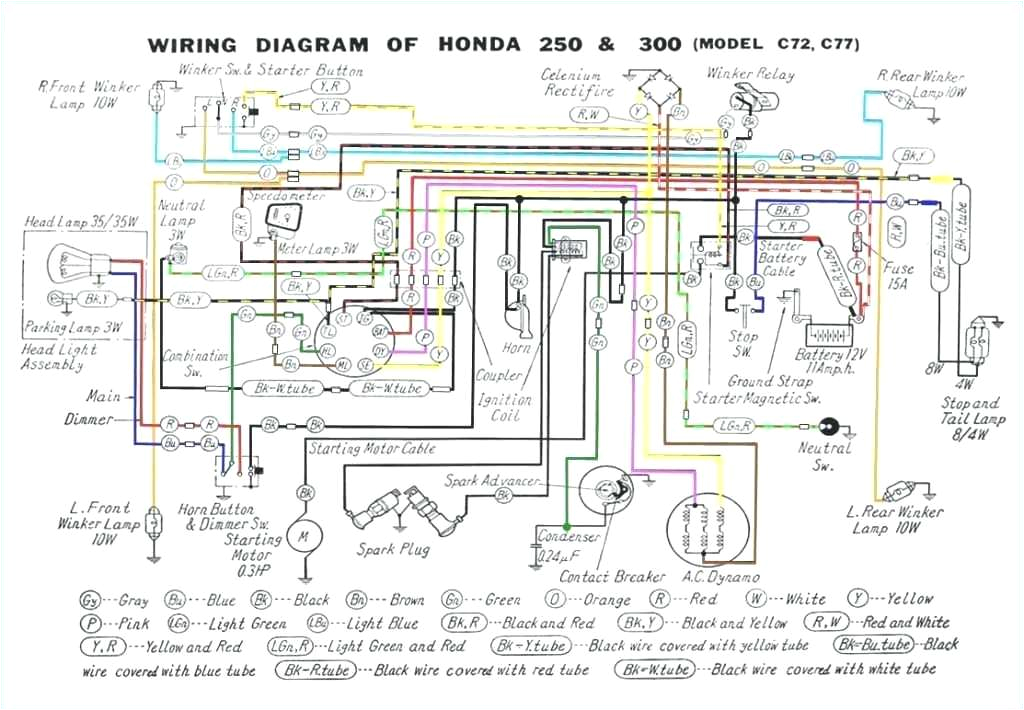 WIRING DIAGRAM OF HONDA 250 & 300 (MODEL C72, C77)
Winker Sw. & Starter Button
R. Front Winker
Lamp 10W
Y,R
Y,R
Celenium
Rectifire
R,W
Y
Bn
Winker Relay
R. Rear Winker
Lamp 10W
Gy
Gy
Gy
Bk
Bk
LB
Bu
LBu
LBu
LBu
O
O
O
O
Bk,Y
Speedometer
Neutral
Lamp
3W
Head Lamp 35/35W
Bk,R
Bk,Y
LGn,R
Meter Lamp 3W
LGn,R
Bk,Y
Bk,Y
Bk,Y
Parking Lamp 3W
Head Light
Assembly
Combination
Sw.
Gn
Gn
Bn
Bn
L
ST
IG
BAT
DY
SE
ML
HL
R
P
Y
Bk
R
P
Y
Bk
R
P
Y
Bk
Bk
Bk
Horn
Coupler
Ignition
Coil
Gn
Gn
Y
Y
P
Bn
Bn
Bk
Bk
Bk
Bk,R
Y,R
Starter
Battery
Cable
Bk-R.tube
R
R
R,W
Fuse
15A
Bu
Bk-Bu.tube
Bk-Y.tube
Stop
SW.
Ground Strap
Starter Magnetic Sw.
Battery 12V
11Amp.h.
8W
4W
Stop and
Tail Lamp
8/4W
LGn,R
LGn,R
Neutral
Sw.
Bk-W.tube
Bk-W.tube
Main
Dimmer
R
R
Bu
Bu
Bk
Bk
Starting Motor Cable
L. Front
Winker Lamp
10W
Horn Button
& Dimmer Sw.
Starting
Motor
0.3HP
Bk
M
Spark Plug
Spark Advancer
Bk
Condenser
0.24μF
Contact Breaker
A.C. Dynamo
L. Rear Winker
Lamp 10W
Gy---Gray Bu---Blue Bk---Black Bn---Brown Gn---Green O---Orange R---Red W---White Y---Yellow
P---Pink LGn---Light Green LBu---Light Blue Bk,R---Black and Red Bk,Y---Black and Yellow R,W---Red and White
Y,R---Yellow and Red LGn,R---Light Green and Red Bk-Y.tube---Black wire covered with yellow tube Bk-Bu.tube---Black
wire covered with blue tube Bk-R.tube---Black wire covered with red tube Bk-W.tube---Black wire covered with white tube